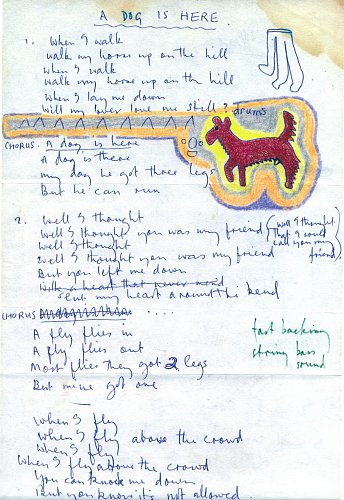 A DOG IS HERE.
1. When I walk
walk my horse up on the hill
when I walk
walk my horse up on the hill
when I lay me down
Will my lover love me still?
drums
CHORUS. A dog is here
A dog is there
my dog he got three legs
But he can run
2. Well I thought
Well I thought you was my friend
Well I thought
Well I thought you was my friend
(well I thought
that I could
call you my
friend)
But you left me down
with a heart that never mend
sent my heart around the bend
CHORUS ....
A fly flies in
A fly flies out
Most flies they got 2 legs
But mine got one
fast backing
string bass
sound
When I fly
When I fly above the crowd
When I fly
When I fly above the crowd
You can knock me down
But you know it's not allowed.